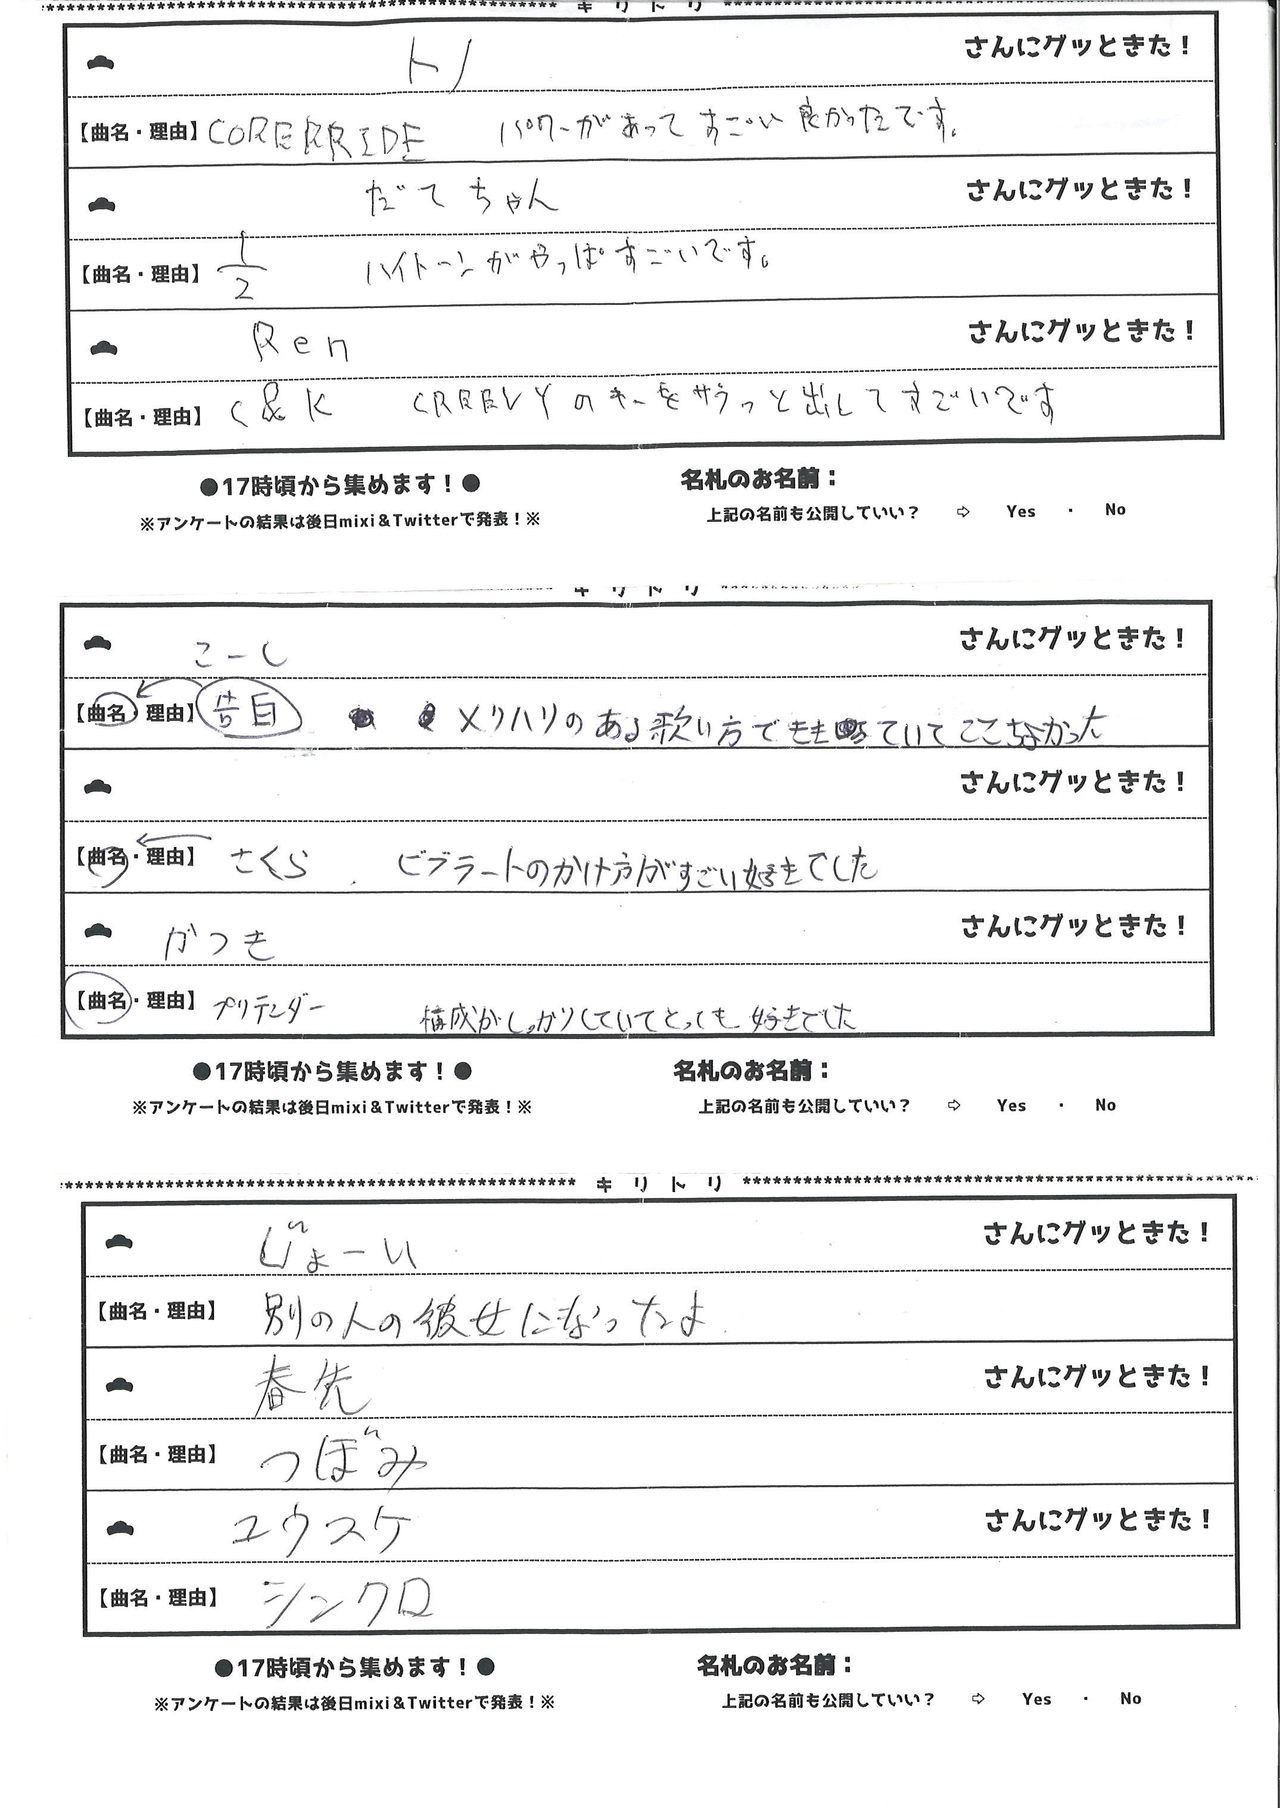 キリトリ
トノ さんにグッときた！
【曲名・理由】 CORERRIDE パワーがあってすごい良かったです。
だてちゃん さんにグッときた！
【曲名・理由】 1/2 ハイトーンがやっぱすごいです。
Ren さんにグッときた！
【曲名・理由】 C&K のキーをサラっと出してすごいです
●17時頃から集めます！● 名札のお名前：
※アンケートの結果は後日mixi＆Twitterで発表！※ 上記の名前も公開していい？ ⇨ Yes ・ No
キリトリ
こーし さんにグッときた！
【曲名・理由】 告白 メリハリのある歌い方で ていてここちよかった
さんにグッときた！
【曲名・理由】 さくら ビブラートのかけ方がすごい好きでした
がつき さんにグッときた！
【曲名・理由】 プリテンダー 構成がしっかりしていてとっても好きでした
●17時頃から集めます！● 名札のお名前：
※アンケートの結果は後日mixi＆Twitterで発表！※ 上記の名前も公開していい？ ⇨ Yes ・ No
キリトリ
じょーい さんにグッときた！
【曲名・理由】 別の人の彼女になったよ
春先 さんにグッときた！
【曲名・理由】 つぼみ
ユウスケ さんにグッときた！
【曲名・理由】 シンクロ
●17時頃から集めます！● 名札のお名前：
※アンケートの結果は後日mixi＆Twitterで発表！※ 上記の名前も公開していい？ ⇨ Yes ・ No